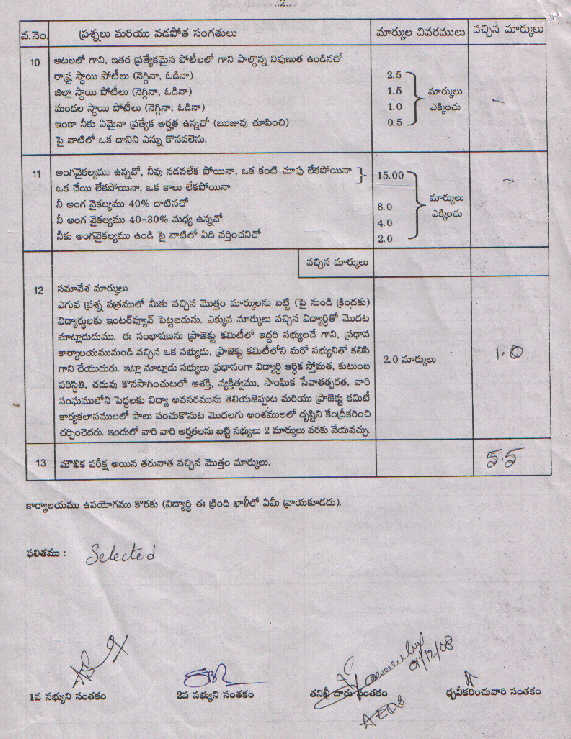 ..2..
వ.నెం. ప్రశ్నలు మరియు వడపోత సంగతులు మార్కుల వివరములు వచ్చిన మార్కులు
10 ఆటలలో గాని, ఇతర ప్రత్యేకమైన పోటీలలో గాని పాల్గొన్న నిపుణత ఉండినచో
రాష్ట్ర స్థాయి పోటీలు (నెగ్గినా, ఓడినా) 2.5
జిల్లా స్థాయి పోటీలు (నెగ్గినా, ఓడినా) 1.5 మార్కులు
మండల స్థాయి పోటీలు (నెగ్గినా, ఓడినా) 1.0 ఎక్కించు
ఇంకా నీకు ఏమైనా ప్రత్యేక అర్హత ఉన్నచో (ఋజువు చూపించి) 0.5
పై వాటిలో ఒక దానిని ఎన్ను కొనవలెను.
11 అంగవైకల్యము ఉన్నచో, నీవు నడవలేక పోయినా, ఒక కంటి చూపు లేకపోయినా 15.00
ఒక చేయి లేకపోయినా, ఒక కాలు లేకపోయినా
నీ అంగ వైకల్యము 40% దాటినచో 8.0 మార్కులు
నీ అంగ వైకల్యము 40-30% మధ్య ఉన్నచో 4.0 ఎక్కించు
నీకు అంగవైకల్యము ఉండి పై వాటిలో ఏది వర్తించనిచో 2.0
వచ్చిన మార్కులు
12 సమావేశ మార్కులు
ఎగువ ప్రశ్న పత్రములో మీకు వచ్చిన మొత్తం మార్కులను బట్టి (పై నుండి క్రిందకు)
విద్యార్థులకు ఇంటర్వ్యూన్ పెట్టబడును. ఎక్కువ మార్కులు వచ్చిన విద్యార్థితో మొదట
మాట్లాడుదుము. ఈ సంభాషణను ప్రాజెక్టు కమిటీలో ఇద్దరి సభ్యులచే గాని, ప్రధాన
కార్యాలయమునుండి వచ్చిన ఒక సభ్యుడు, ప్రాజెక్టు కమిటీలోని మరో సభ్యునితో కలిసి
గాని చేయుదురు. ఇట్లా మాట్లాడు సభ్యులు ప్రధానంగా విద్యార్థి ఆర్థిక స్తోమత, కుటుంబ 2.0 మార్కులు 1.0
పరిస్థితి, చదువు కొనసాగించుటలో ఆశక్తి, వ్యక్తిత్వము, సాంఘిక సేవాతత్పరత, వారి
సంఘములోని పెద్దలకు విద్యా అవసరమును తెలియజెప్పుట మరియు ప్రాజెక్టు కమిటీ
కార్యకలాపములలో పాలు పంచుకొనుట మొదలగు అంశములలో దృష్టిని కేంద్రీకరించి
చర్చించెదరు. ఇందులో వారి వారి అర్హతలను బట్టి సభ్యులు 2 మార్కులు వరకు వేయవచ్చు
13 మౌఖిక పరీక్ష అయిన తరువాత వచ్చిన మొత్తం మార్కులు. 5.5
కార్యాలయము ఉపయోగము కొరకు (విద్యార్థి ఈ క్రింది ఖాళీలో ఏమీ వ్రాయకూడదు).
ఫలితము : Selected
01/12/08
1వ సభ్యుని సంతకం 2వ సభ్యుని సంతకం తనిఖీ దారు సంతకం ధృవీకరించువారి సంతకం